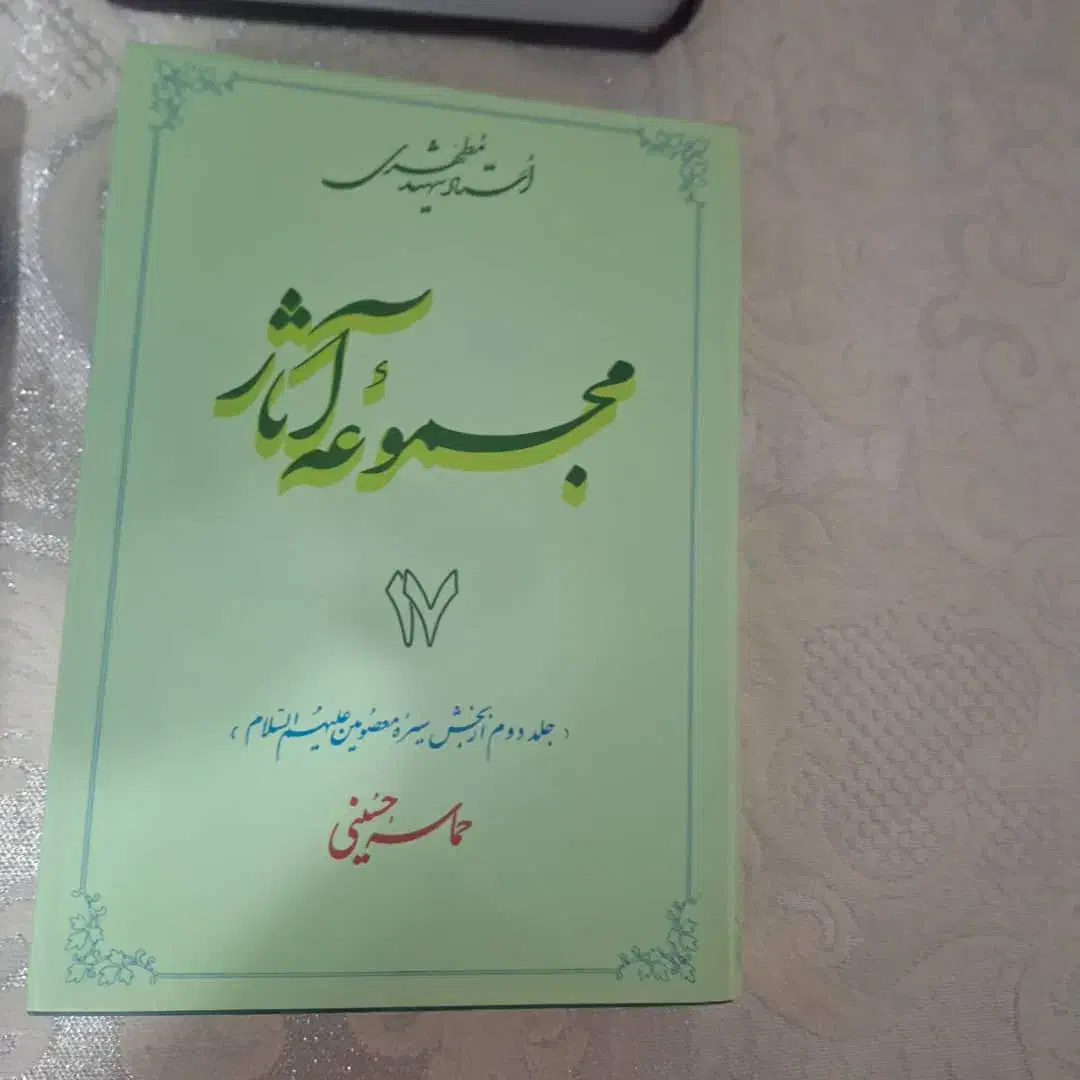 استاد شهید مطهری
مجموعهٔ آثار
۱۷
(جلد دوم از بخش سیرهٔ معصومین علیهم السّلام)
حماسه حسینی